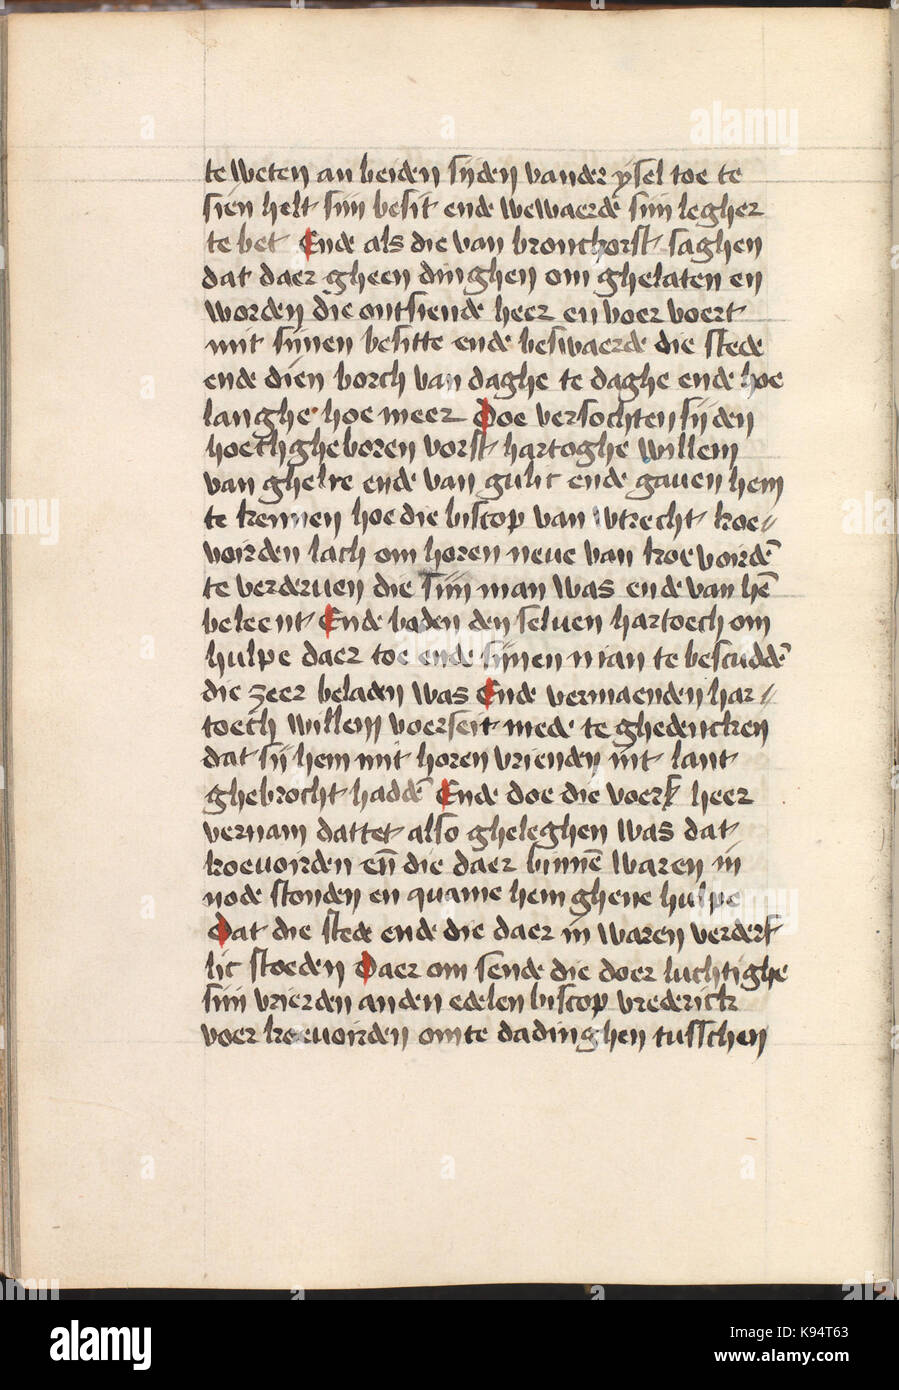 te weten an beiden sijden vander ysel toe te
sien helt sijn besit ende wewaerde sijn legher
te bet Ende als die van bronchorst saghen
dat daer gheen dinghen om ghelaten en
worden die ontsiende heer en voer voert
mit sijnen besitte ende beswaerde die stede
ende dien borch van daghe te daghe ende hoe
langhe hoe meer Doe versochten sij den
hoechgheboren vorst hartoghe willem
van ghelre ende van gulic ende gauen hem
te kennen hoe die biscop van wtrecht koe//
voirden lach om horen neue van koevordē
te verderuen die sijn man was ende van hē
beleent Ende baden den seluen hartoech om
hulpe daer toe ende sijnen man te bescuddē
die zeer beladen was Ende vermaenden har//
toech willem voerseit mede te ghedencken
dat sij hem mit horen vrienden int lant
ghebrocht haddē Ende doe die voers heer
vernam dattet also gheleghen was dat
koevoirden en̄ die daer binnē waren in
node stonden en quame hem ghene hulpe
Dat die stede ende die daer in waren verderf
lic stoeden Daer om sende die doer luchtighe
sijn vrienden an den edelen biscop vrederick
voer koevoirden om te dadinghen tusschen
alamy
alamy
alamy
alamy
a
a
a
K94T63
www.alamy.com